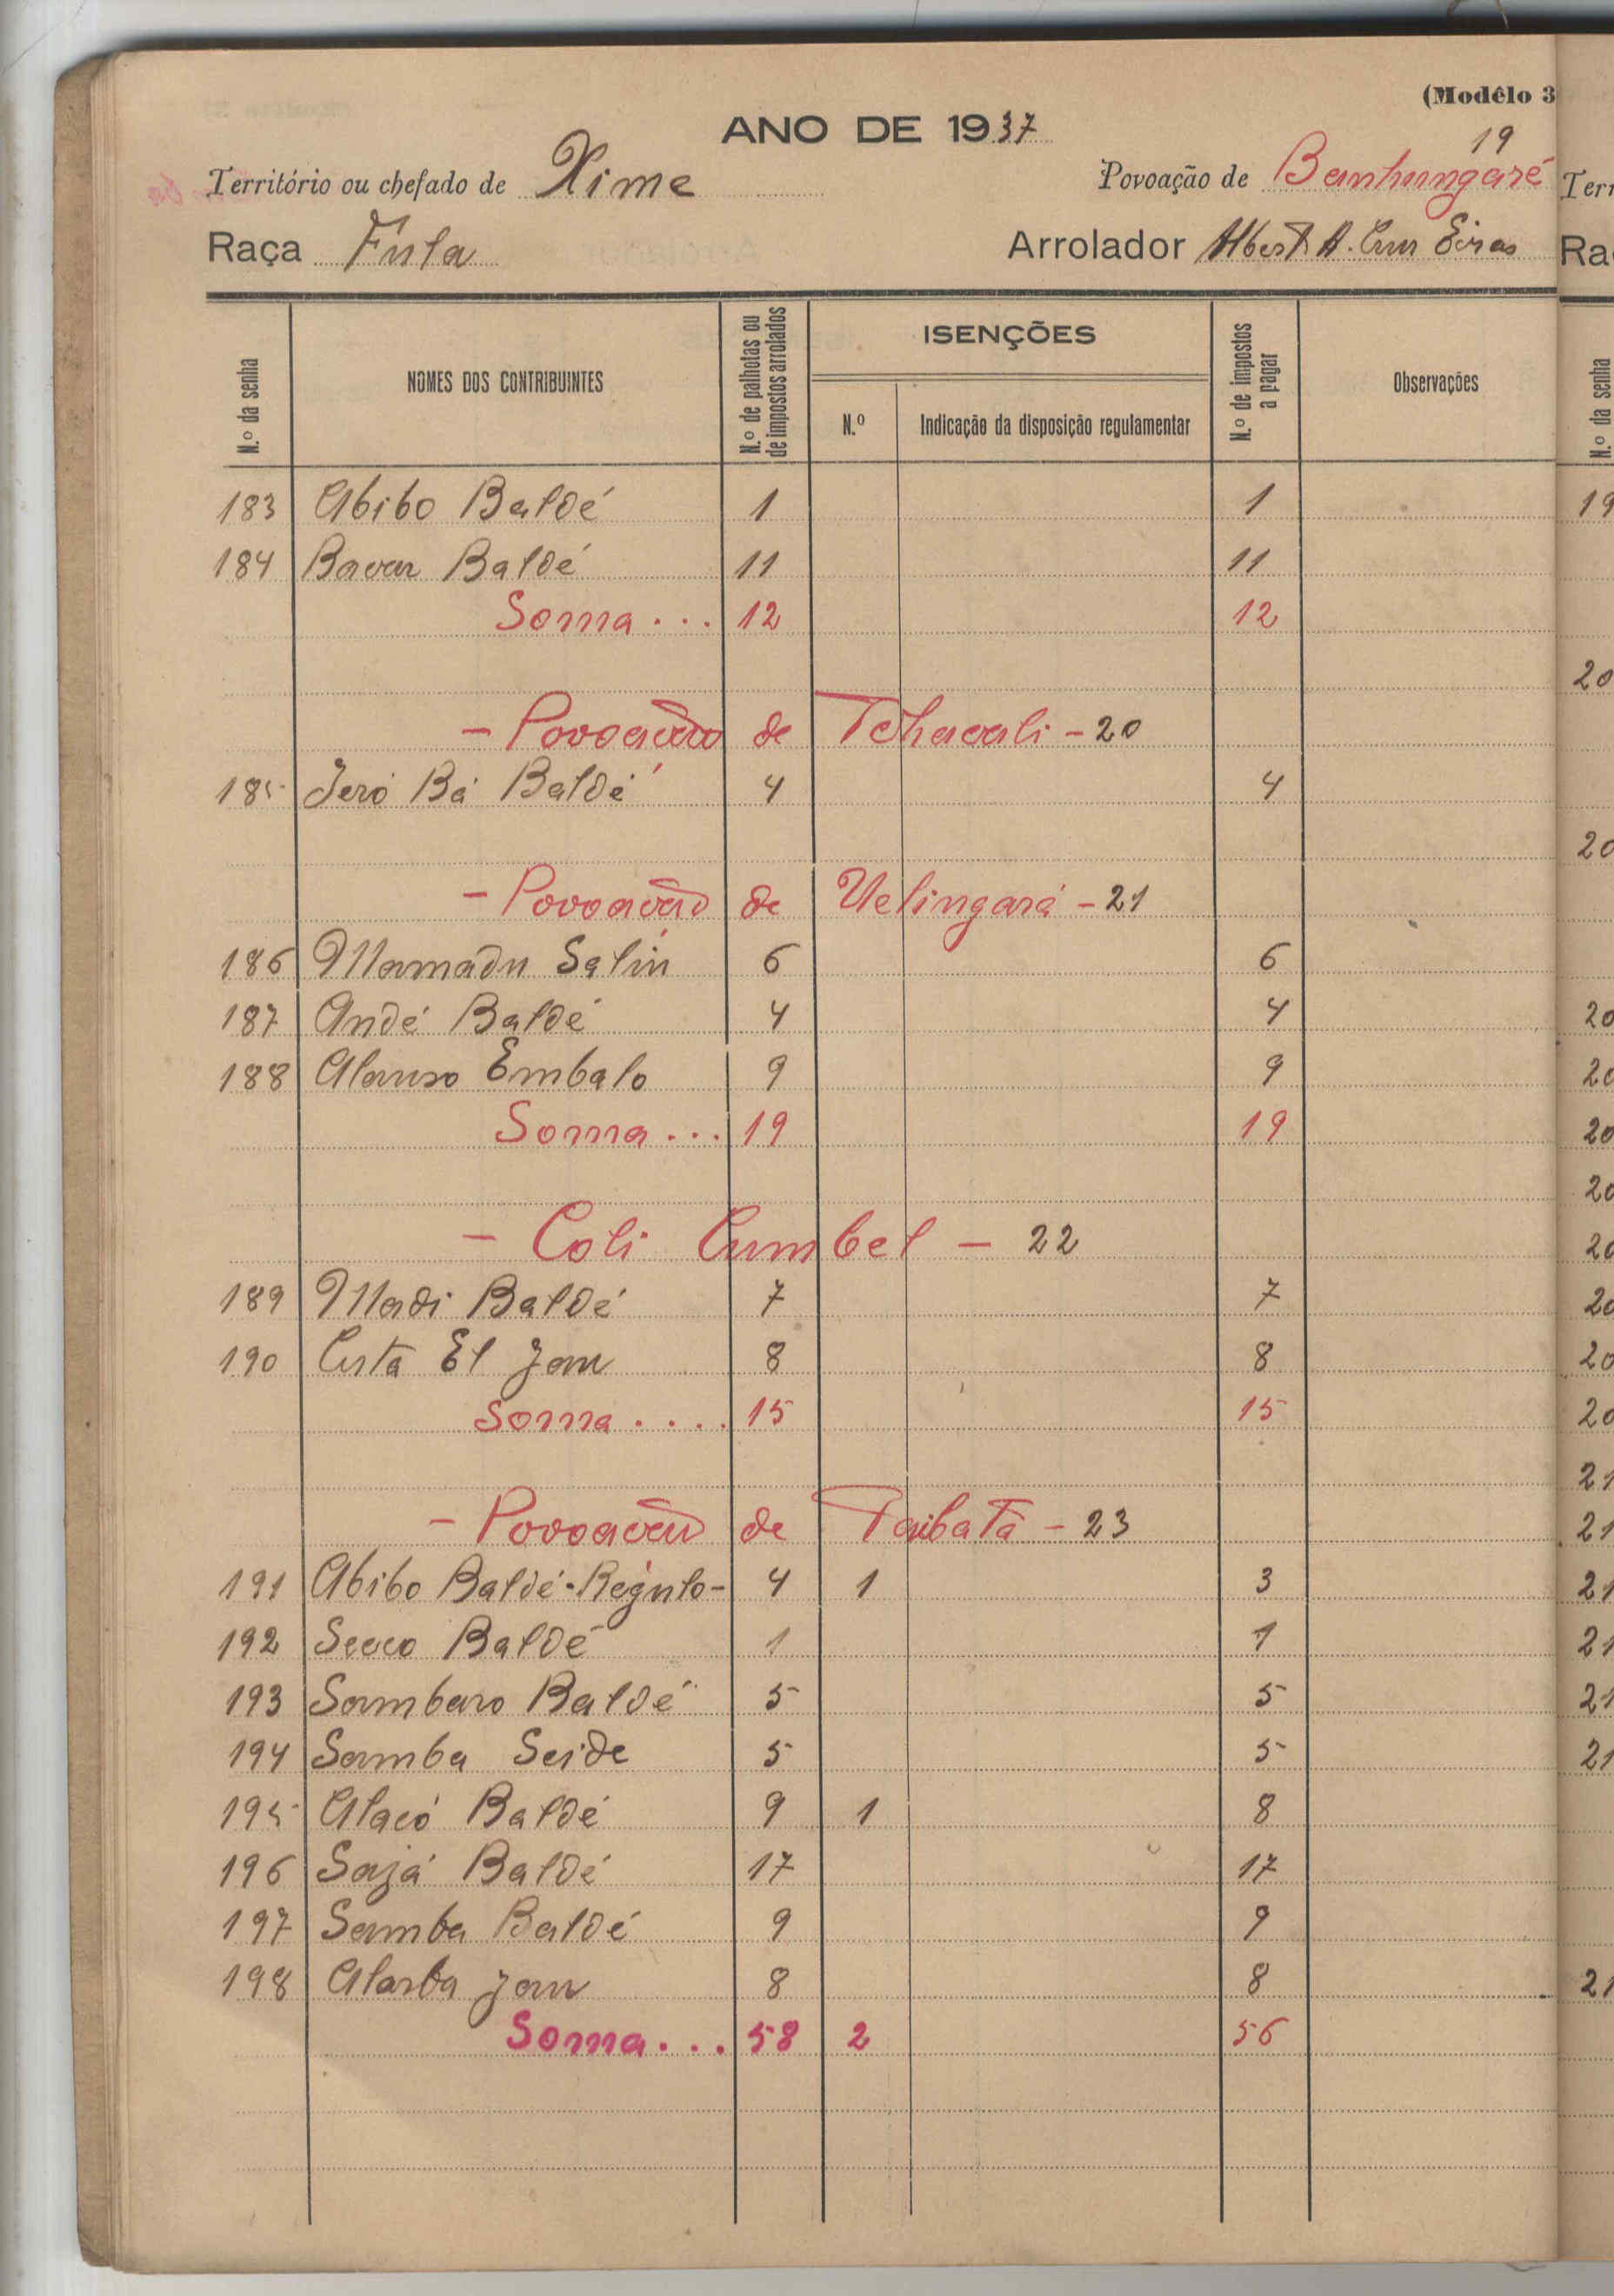 (Modêlo 3
ANO DE 1937
19
Território ou chefado de Xime Povoação de Banhungaré
Raça Fula Arrolador Albert. A. Cruz Eiras
N.º da senha NOMES DOS CONTRIBUINTES N.º de palhotas ou de impostos arrolados ISENÇÕES N.º de impostos a pagar Observações
N.º Indicação da disposição regulamentar
183 Abibo Baldé 1 1
184 Bacar Baldé 11 11
Soma... 12 12
- Povoação de Tchacali - 20
185 Jeró Bá Baldé 4 4
- Povoação de Uelingará - 21
186 Mamadu Saliu 6 6
187 Andé Baldé 4 4
188 Alanso Embalo 9 9
Soma... 19 19
- Coli Cumbel - 22
189 Madi Baldé 7 7
190 El Jau 8 8
Soma.... 15 15
- Povoação de Taibatá - 23
191 Abibo Baldé-Régulo- 4 1 3
192 Seco Baldé 1 1
193 Sambaro Baldé 5 5
194 Samba Seide 5 5
195 Alacó Baldé 9 1 8
196 Sajá Baldé 17 17
197 Samba Baldé 9 9
198 Alarba Jau 8 8
Soma... 58 2 56